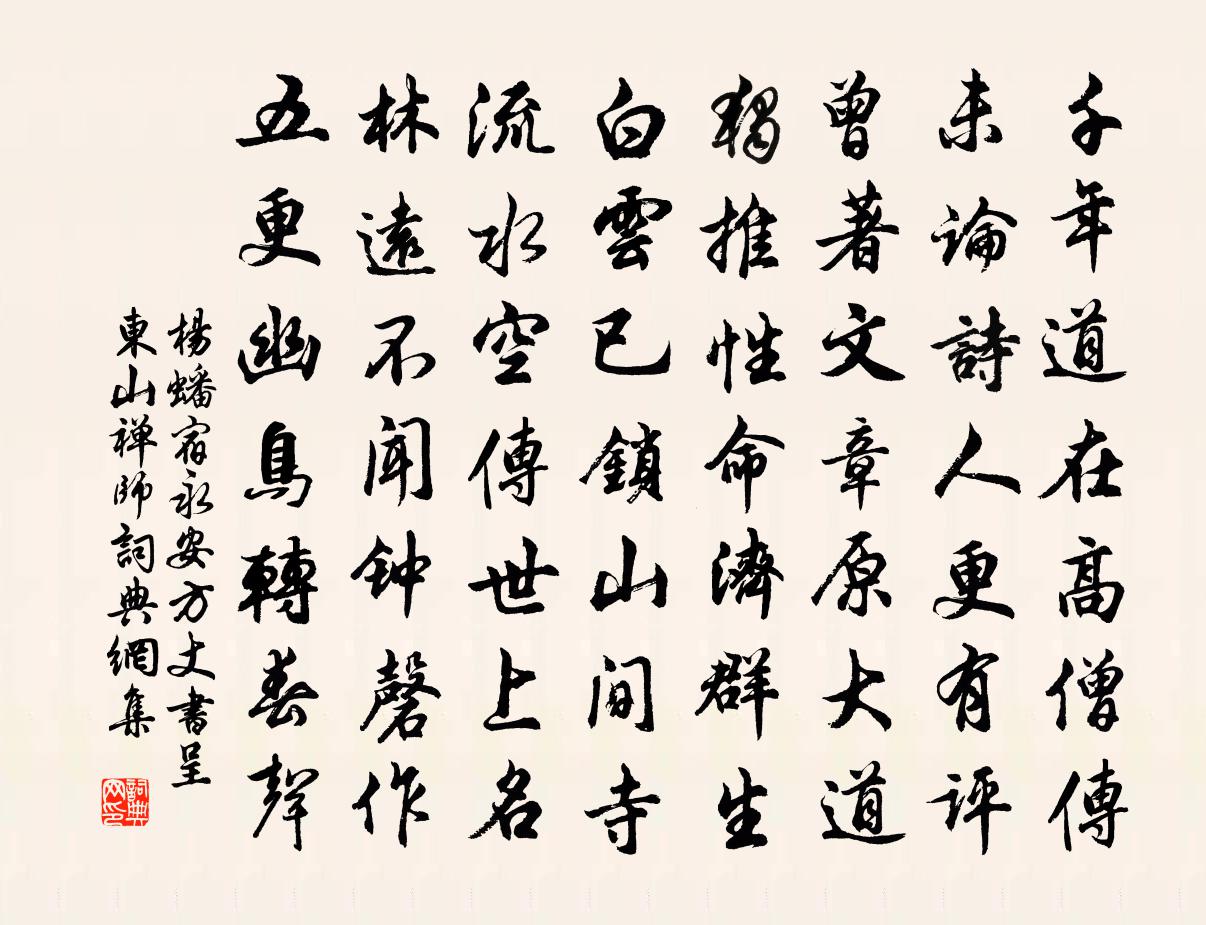 千年道在高僧傳
未論詩人更有評
曾著文章原大道
獨推性命濟群生
白雲已鎖山間寺
流水空傳世上名
林遠不聞钟磬作
五更幽鳥轉春聲
楊蟠宿永安方丈書呈
東山禅師詞典網集
詞典網印